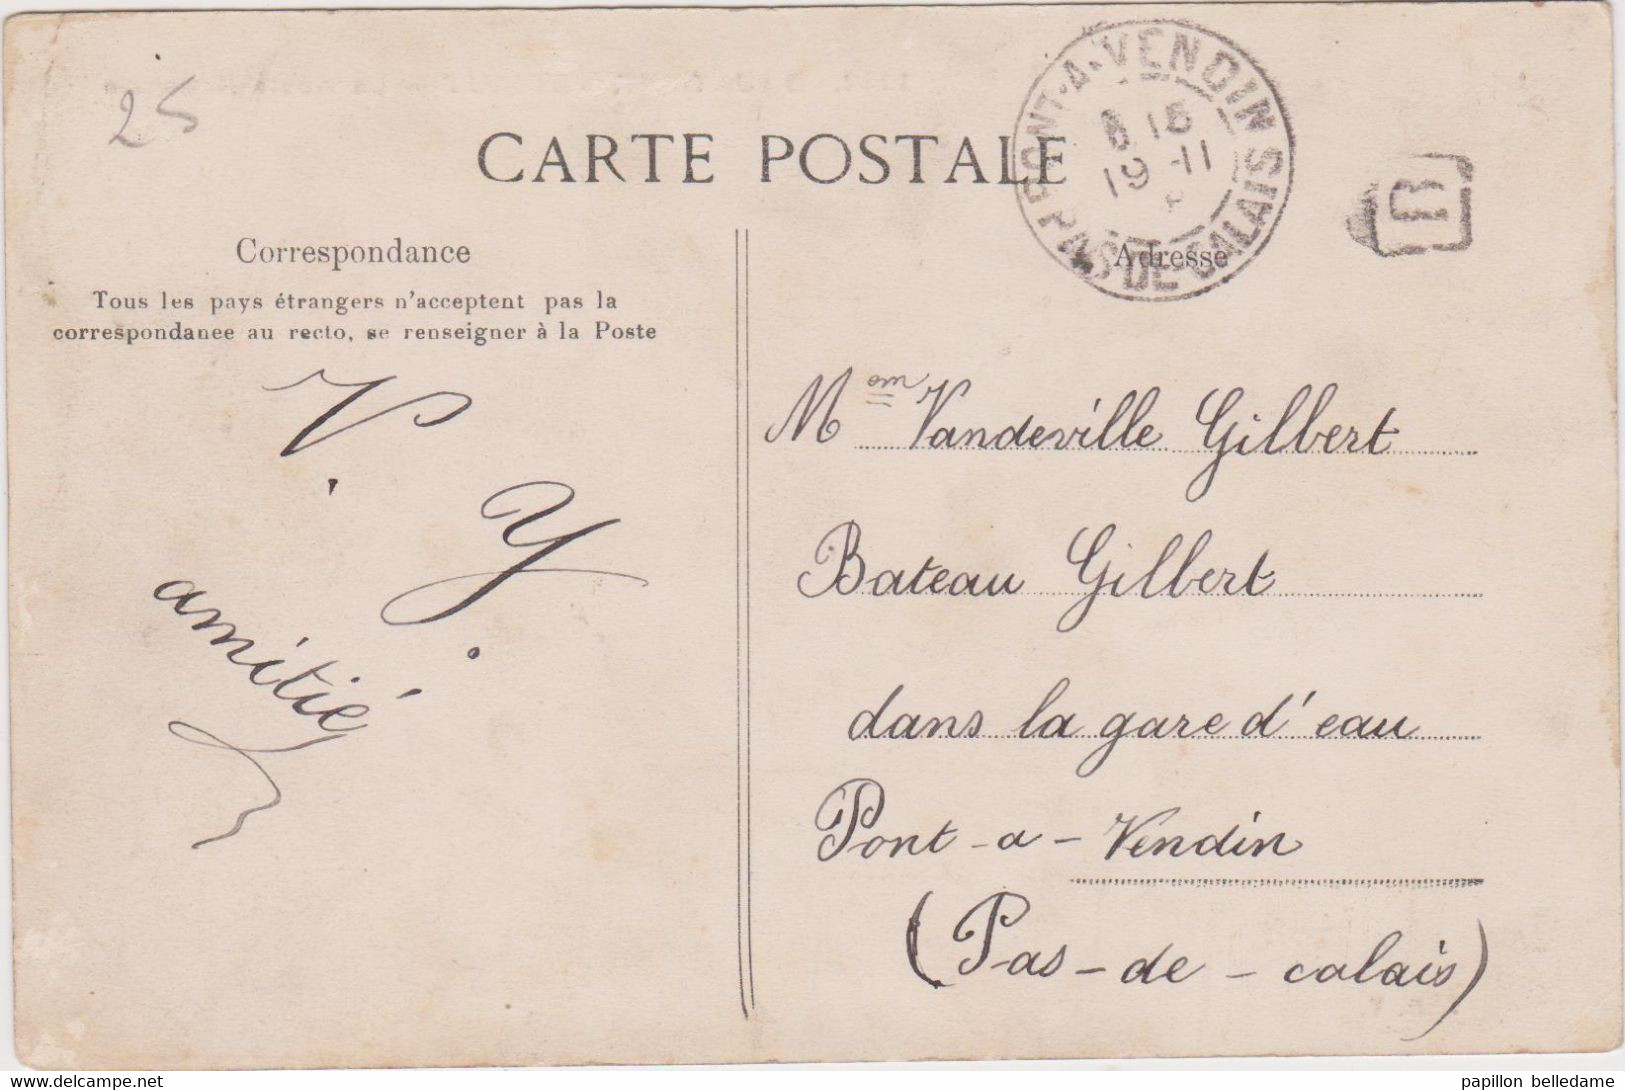 25
CARTE POSTALE
PONT-A-VENDIN
PAS-DE-CALAIS
19 -11
Correspondance
Adresse
Tous les pays étrangers n'acceptent pas la
correspondanee au recto, se renseigner à la Poste
V. Y.
amitié
Mem Vandeville Gilbert
Bateau Gilbert
dans la gare d'eau
Pont-a-Vendin
(Pas-de-calais)
delcampe.net
papillon belledame